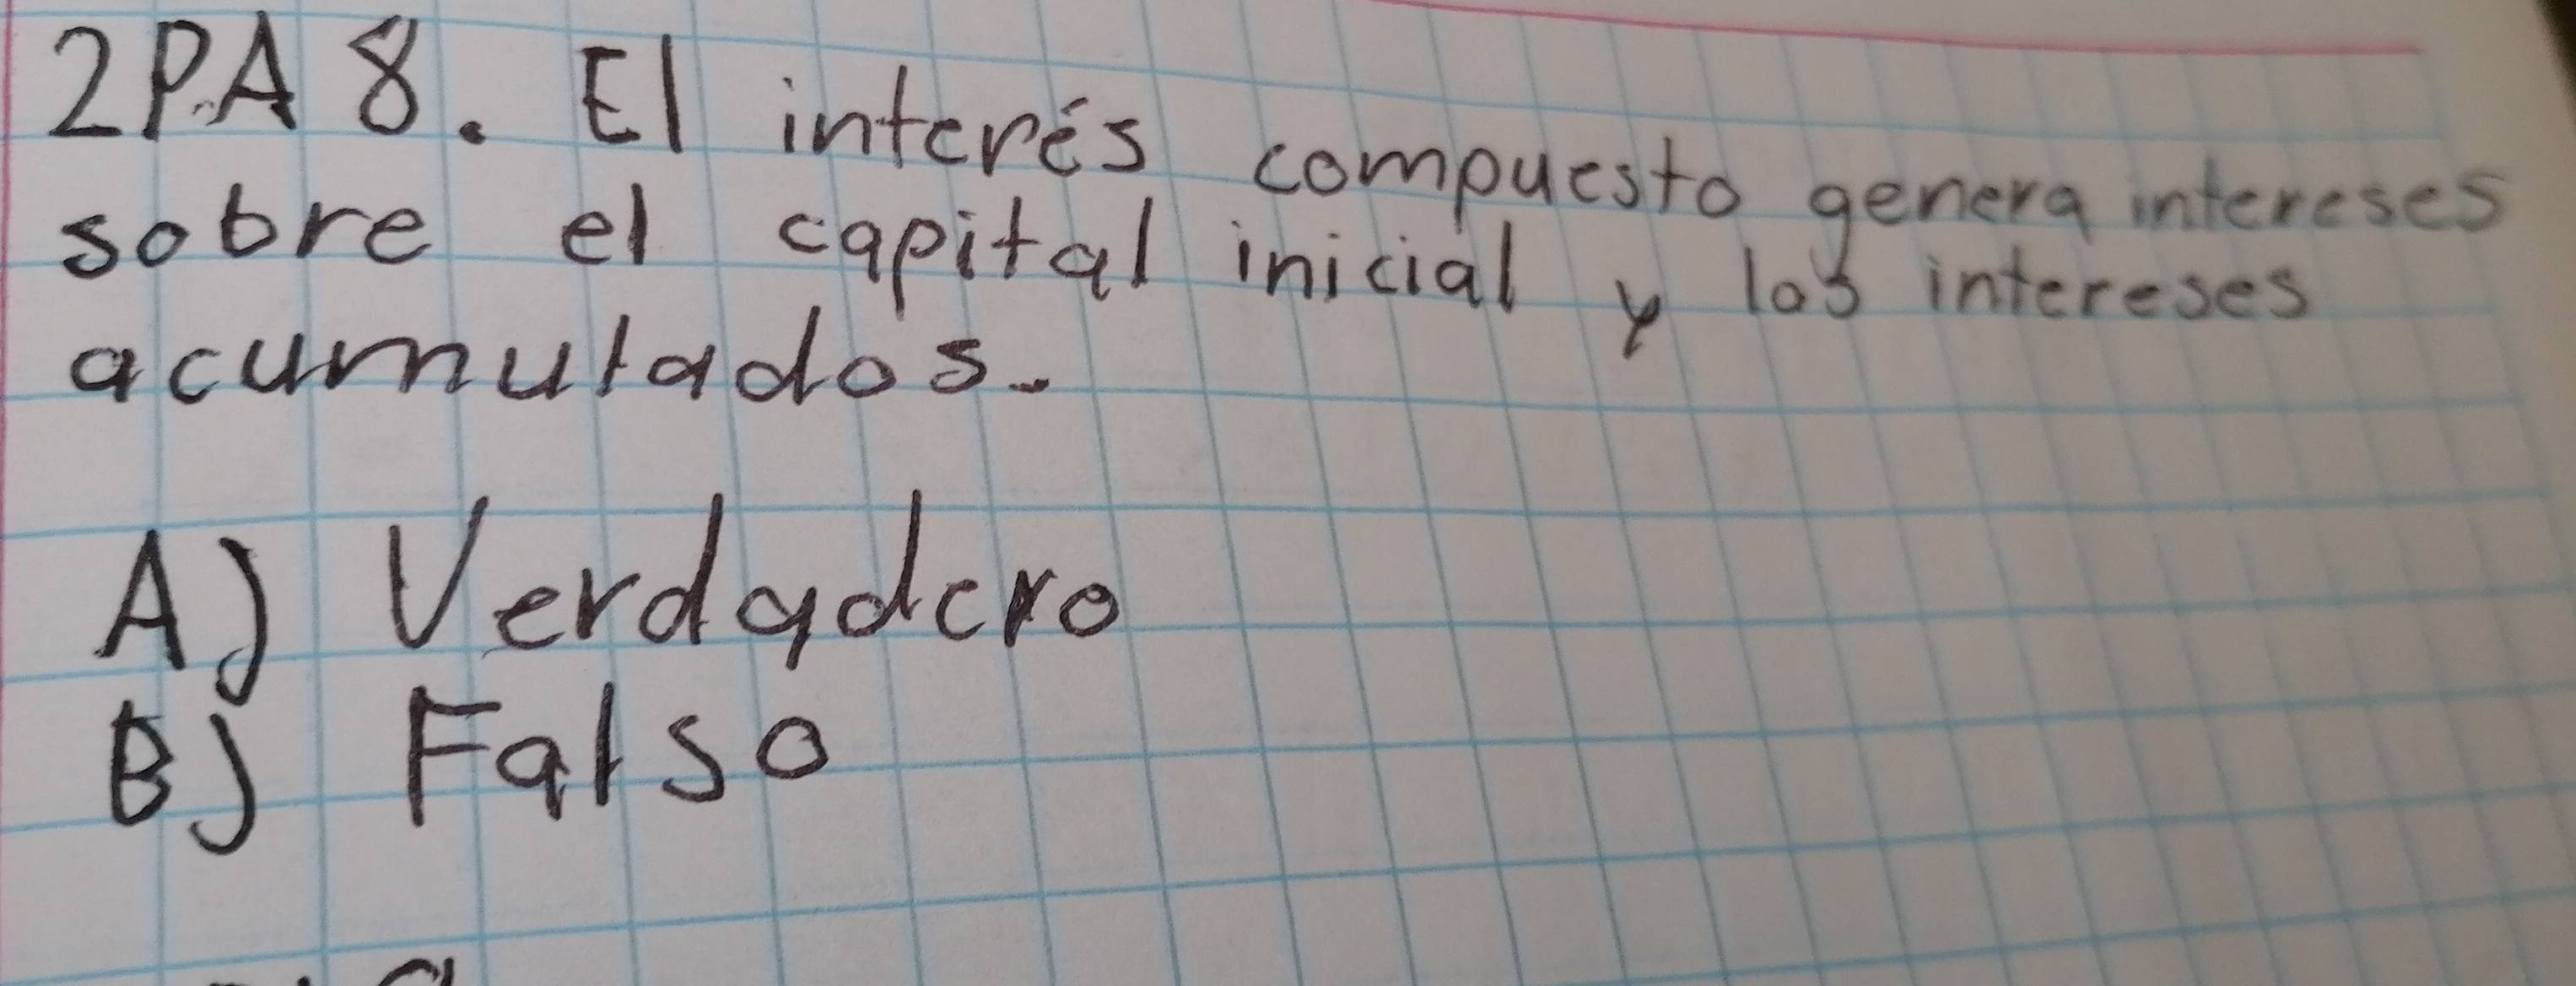 2PA 8. El interés compuesto genera intereses
sobre el capital inicial y los intereses
acumulados.
A) Verdadero
B) Falso